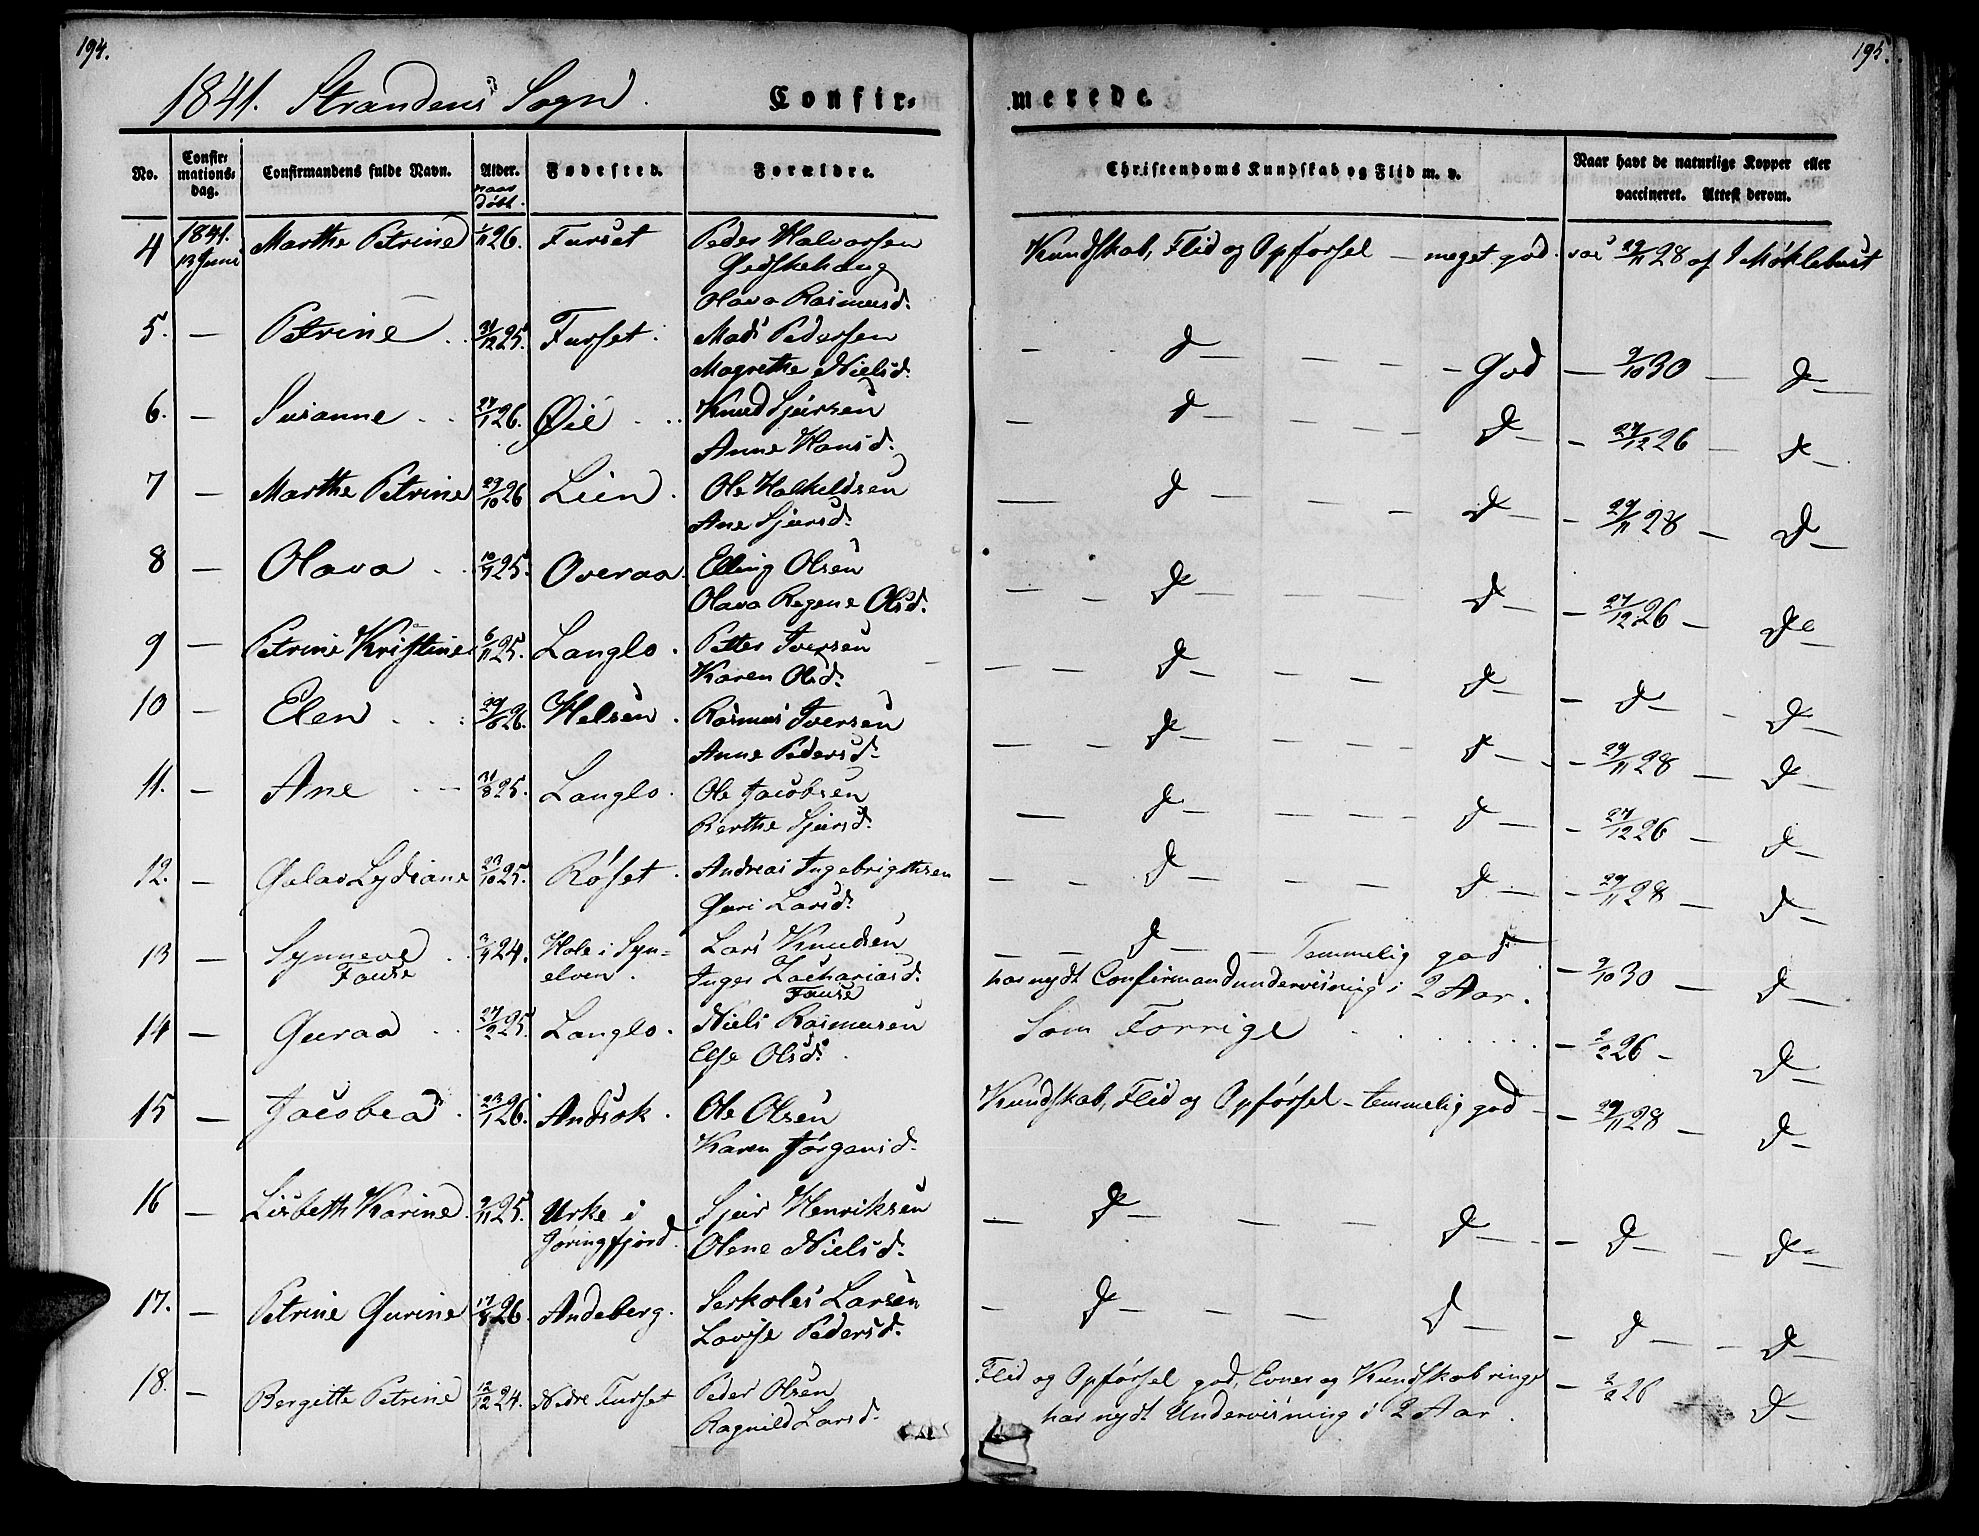 194.
195.
1841. Strandens Sogn. Confir-
merede.
No. Confir-mations-dag. Confirmandens fulde Navn. Alder. naar døbt. Fødested. Forældre.
Christendoms Kundskab og Flid m. v. Naar havt de naturlige Kopper eller vaccineret. Attest derom.
4 1841. 13 Juni Marthe Petrine 26. Furset Peder Halvorsen
Gjedskehaug
Olava Rasmusd. Kundskab, Flid og Opførsel — meget god. vac 29/11 28 af I Møklebust
5. — Petrine 31/12 25. Furset. Mads Pedersen
Magrethe Nielsd. — d — — — God — 9/10 30 — d —
6. — Susanne 27/1 26. Øie Knud Sjursen
Anne Hansd. — d — — — d — — 27/12 26 — d —
7 — Marthe Petrine 29/10 26 Lien. Ole Halkeldsen
Ane Sjursd. — d — — — d — — 29/11 28 — d —
8 — Olava 25. Overaa. Elling Olsen
Olava Regene Olsd. — — d — — — d — — 27/12 26 — d —
9 — Petrine Kristine 6/11 25. Langlo. Petter Iversen
Karen Olsd. — — d — — — d — — d — — d —
10 — Elen 26. Helsen. Rasmus Iversen
Anne Pedersd. — — d — — — d — — 29/11 28 — d —
11. — Ane 31/8 25. Langlo. Ole Jacobsen
Berthe Sjursd. — d — — — d — — 27/12 26 — d —
12. — Lydiane 23/10 25. Røset. Andreas Ingebrigtsen
Guri Larsd. — — d — — — d — — 29/11 28 — d —
13 — Synneve
Fause 24. Hole i Syn-
elven. Lars Knudsen
Inger Zachariasd.
Fause — — d — — Temmelig god.
har nydt Confirmandundervisning i 2 Aar. — 9/10 30 — d —
14 — Guraa 25. Langlo. Niels Rasmusen
Else Olsd. Som Forrige — 2/2 26 — d —
15 — Jacobea. 23/1 26. Andsok. Ole Olsen
Karen Jørgensd. Kundskab, Flid og Opførsel — temmelig god — — 29/11 28 — d —
16 — Lisbeth Karine. 9/11 25. Urke i
Jøringfjord. Sjur Henriksen
Olene Nielsd. — d — — — d — — d — — d —
17. — Petrine Gurine 26. Andeberg. Serkoles Larsen
Lovise Pedersd. — d — — — d — — d — — d —
18. — Bergitte Petrine 12/12 24. Nedre Furset Peder Olsen
Ragnild Larsd. Flid og Opførsel god, Evner og Kundskab ringe
har nydt Undervisning i 2 Aar. — 2/2 26 d —